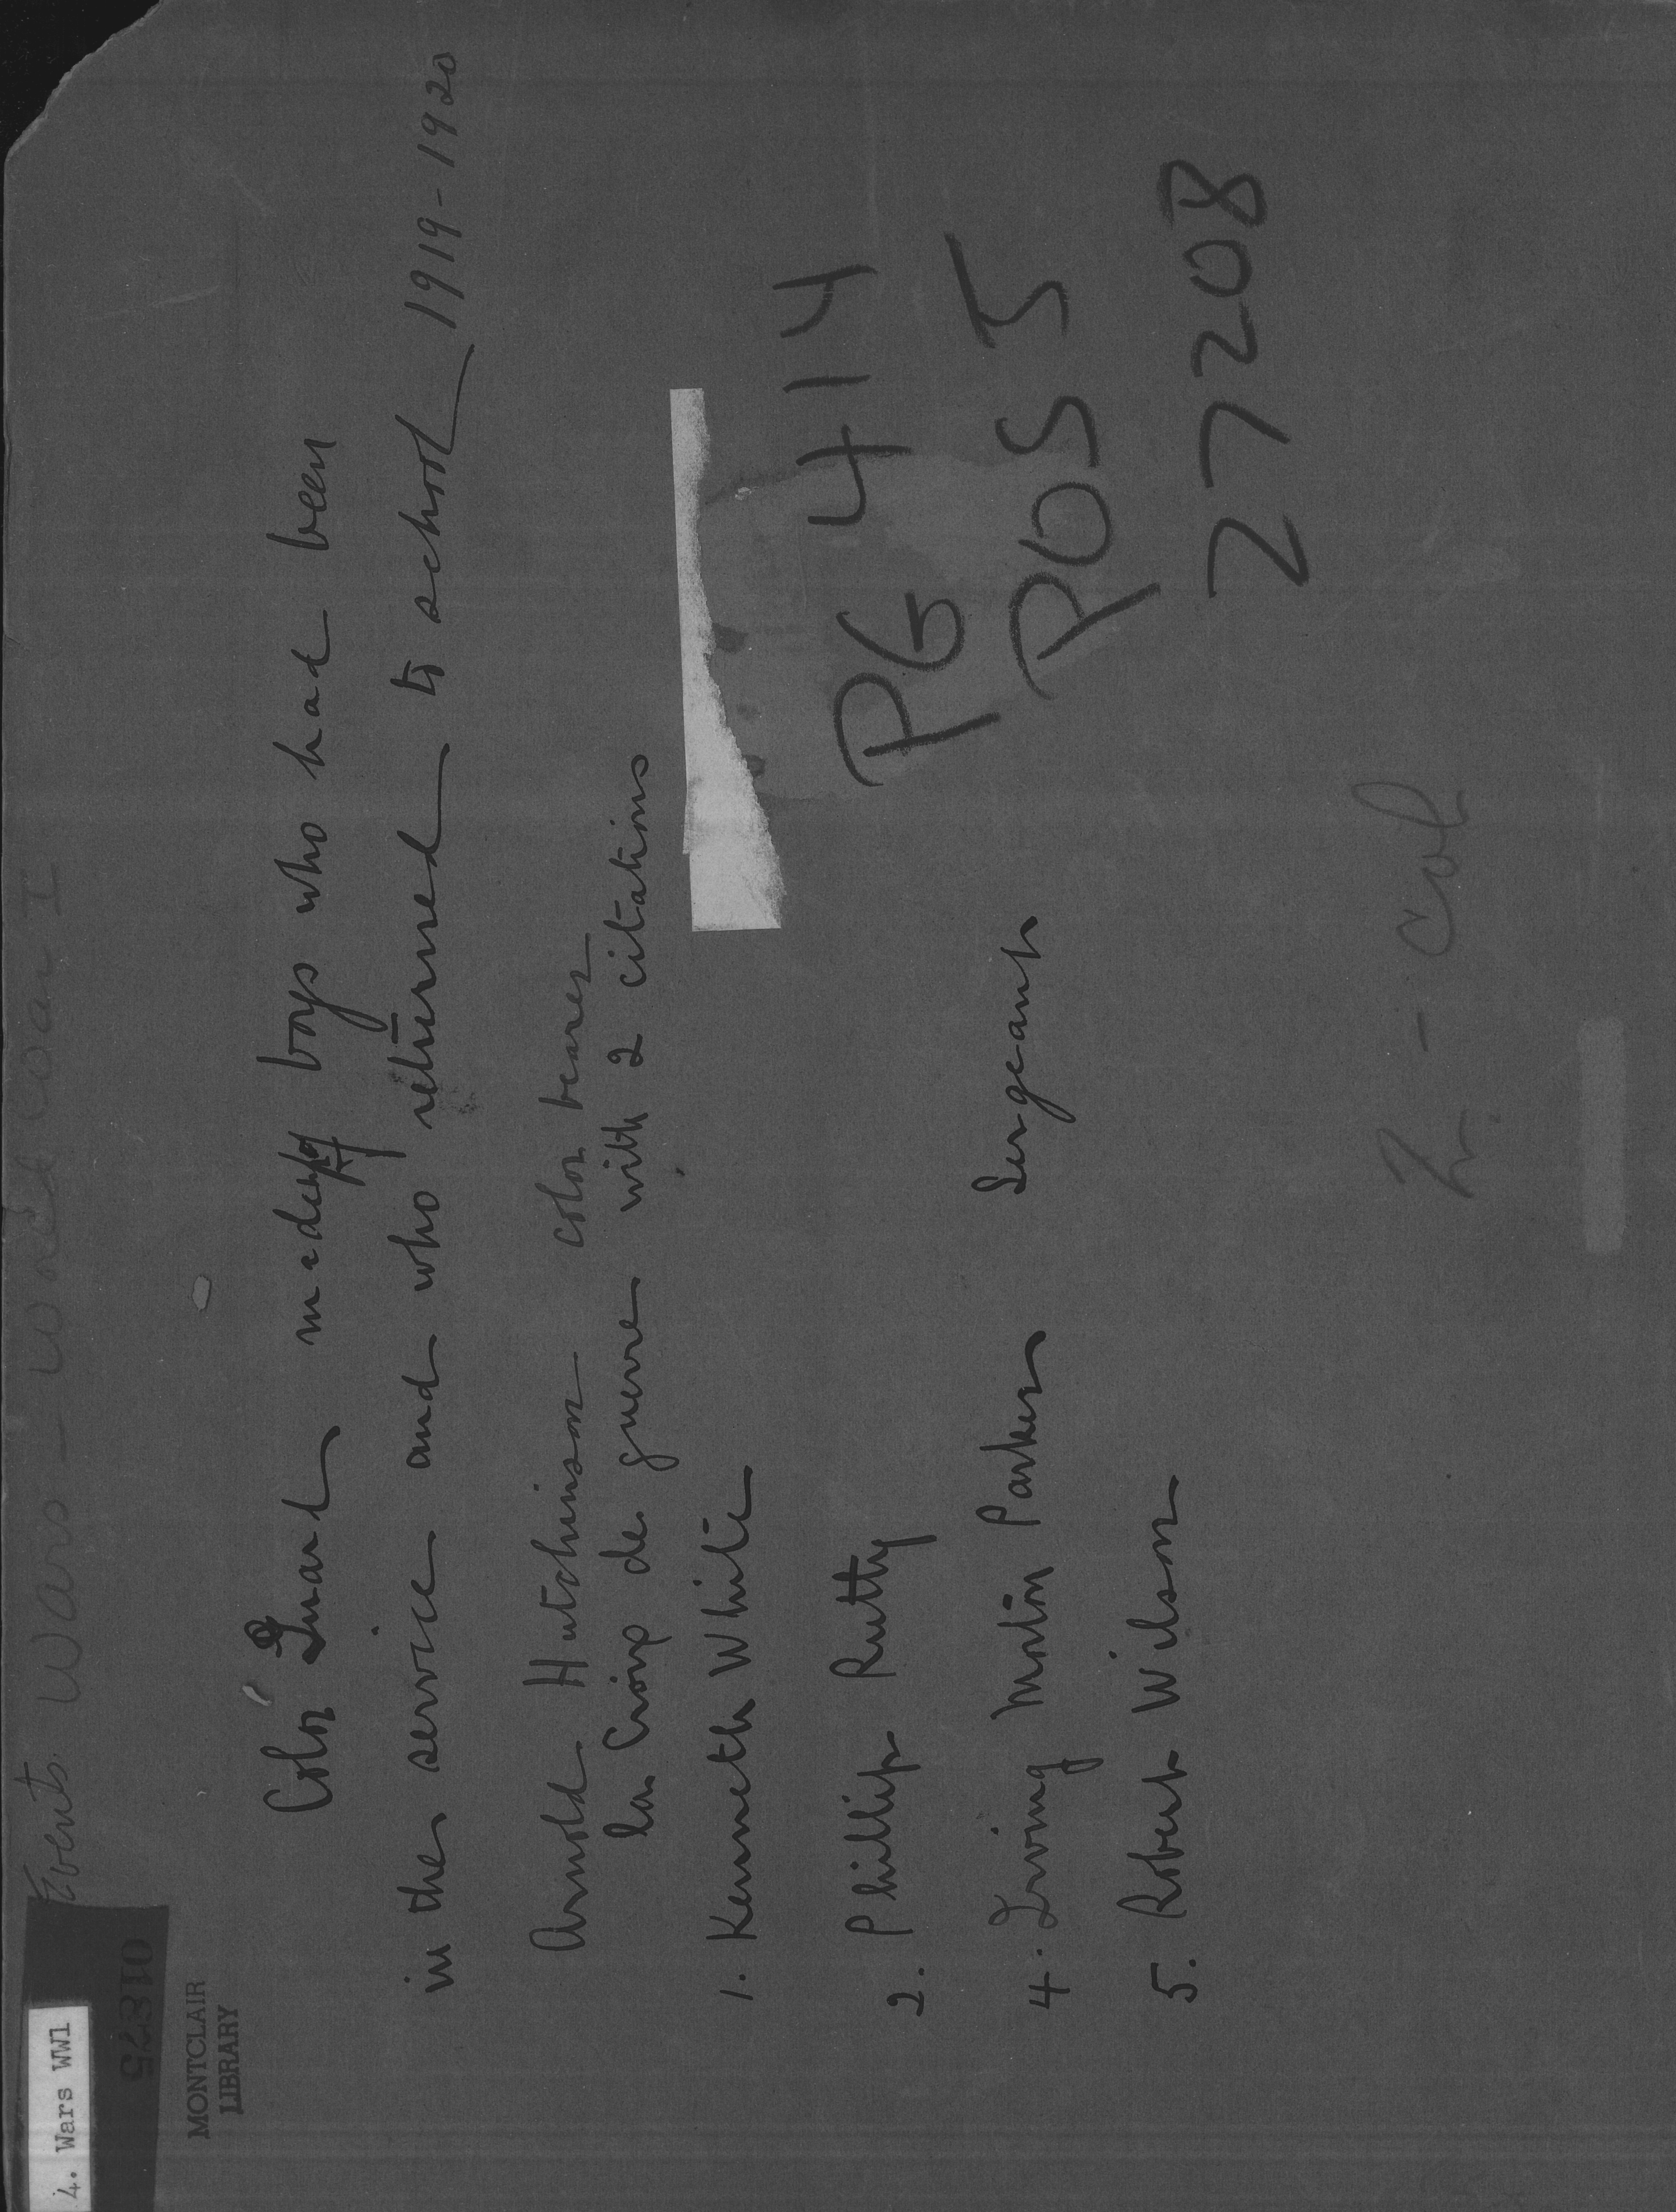 4. Wars WW1
Events Wars - World War I
01875
MONTCLAIR
LIBRARY
Color Guard made of boys who had been
in the service and who returned to school 1919-1920
Arnold Hutchinson color bearer
la Croix de guerre with 2 citations
1. Kenneth White
2. Phillip Rutty
4. Irving Morton Parker Sergeant
5. Robert Wilson
PG 414
POS 5
27208
2 - col